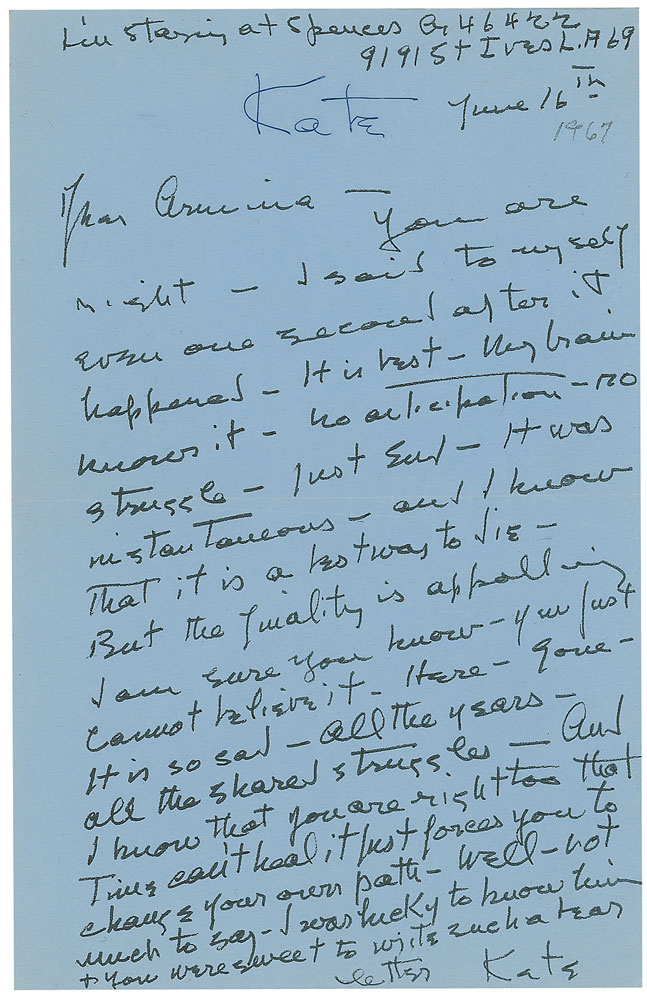 I'm staying at Spences Cr 46422
9191 St Ives L.A 69
Kate June 16th
1967
Dear Armina — You are
right — I said to myself
even one second after it
happened — It is best — My brain
knows it — no anticipation — no
struggle — Just End — It was
instantaneous — and I know
That it is a best way to die —
But the finality is appalling
I am sure you know — You just
cannot believe it — Here — Gone —
It is so sad — all the years —
all the shared struggles — And
I know that you are right too that
Time can't heal it just forces you to
change your own path — Well — not
much to say — I was lucky to know him
+ you were sweet to write such a dear
letter Kate